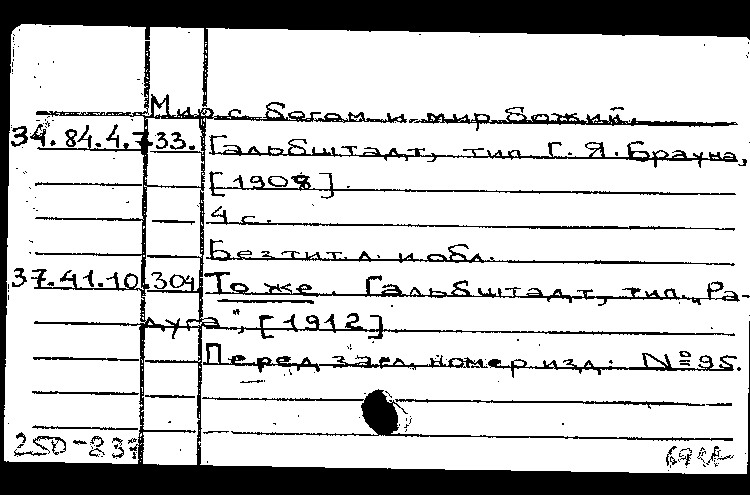 Мир с богом и мир божий.
34.84.4.733. Гальбштадт, тип. Г. Я. Брауна,
[1908].
4 с.
Без тит. л. и обл.
37.41.10.304 То же. Гальбштадт, тип. „Ра-
дуга", [1912].
Перед загл. номер изд: № 95.
250-837